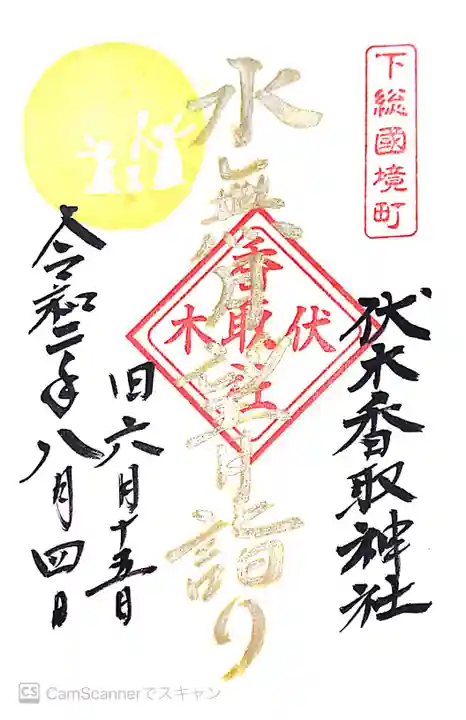 下総國境町
伏木香取神社
水無月望月詣り
伏木
香取社
旧六月十五日
令和二年八月四日
CS CamScannerでスキャン